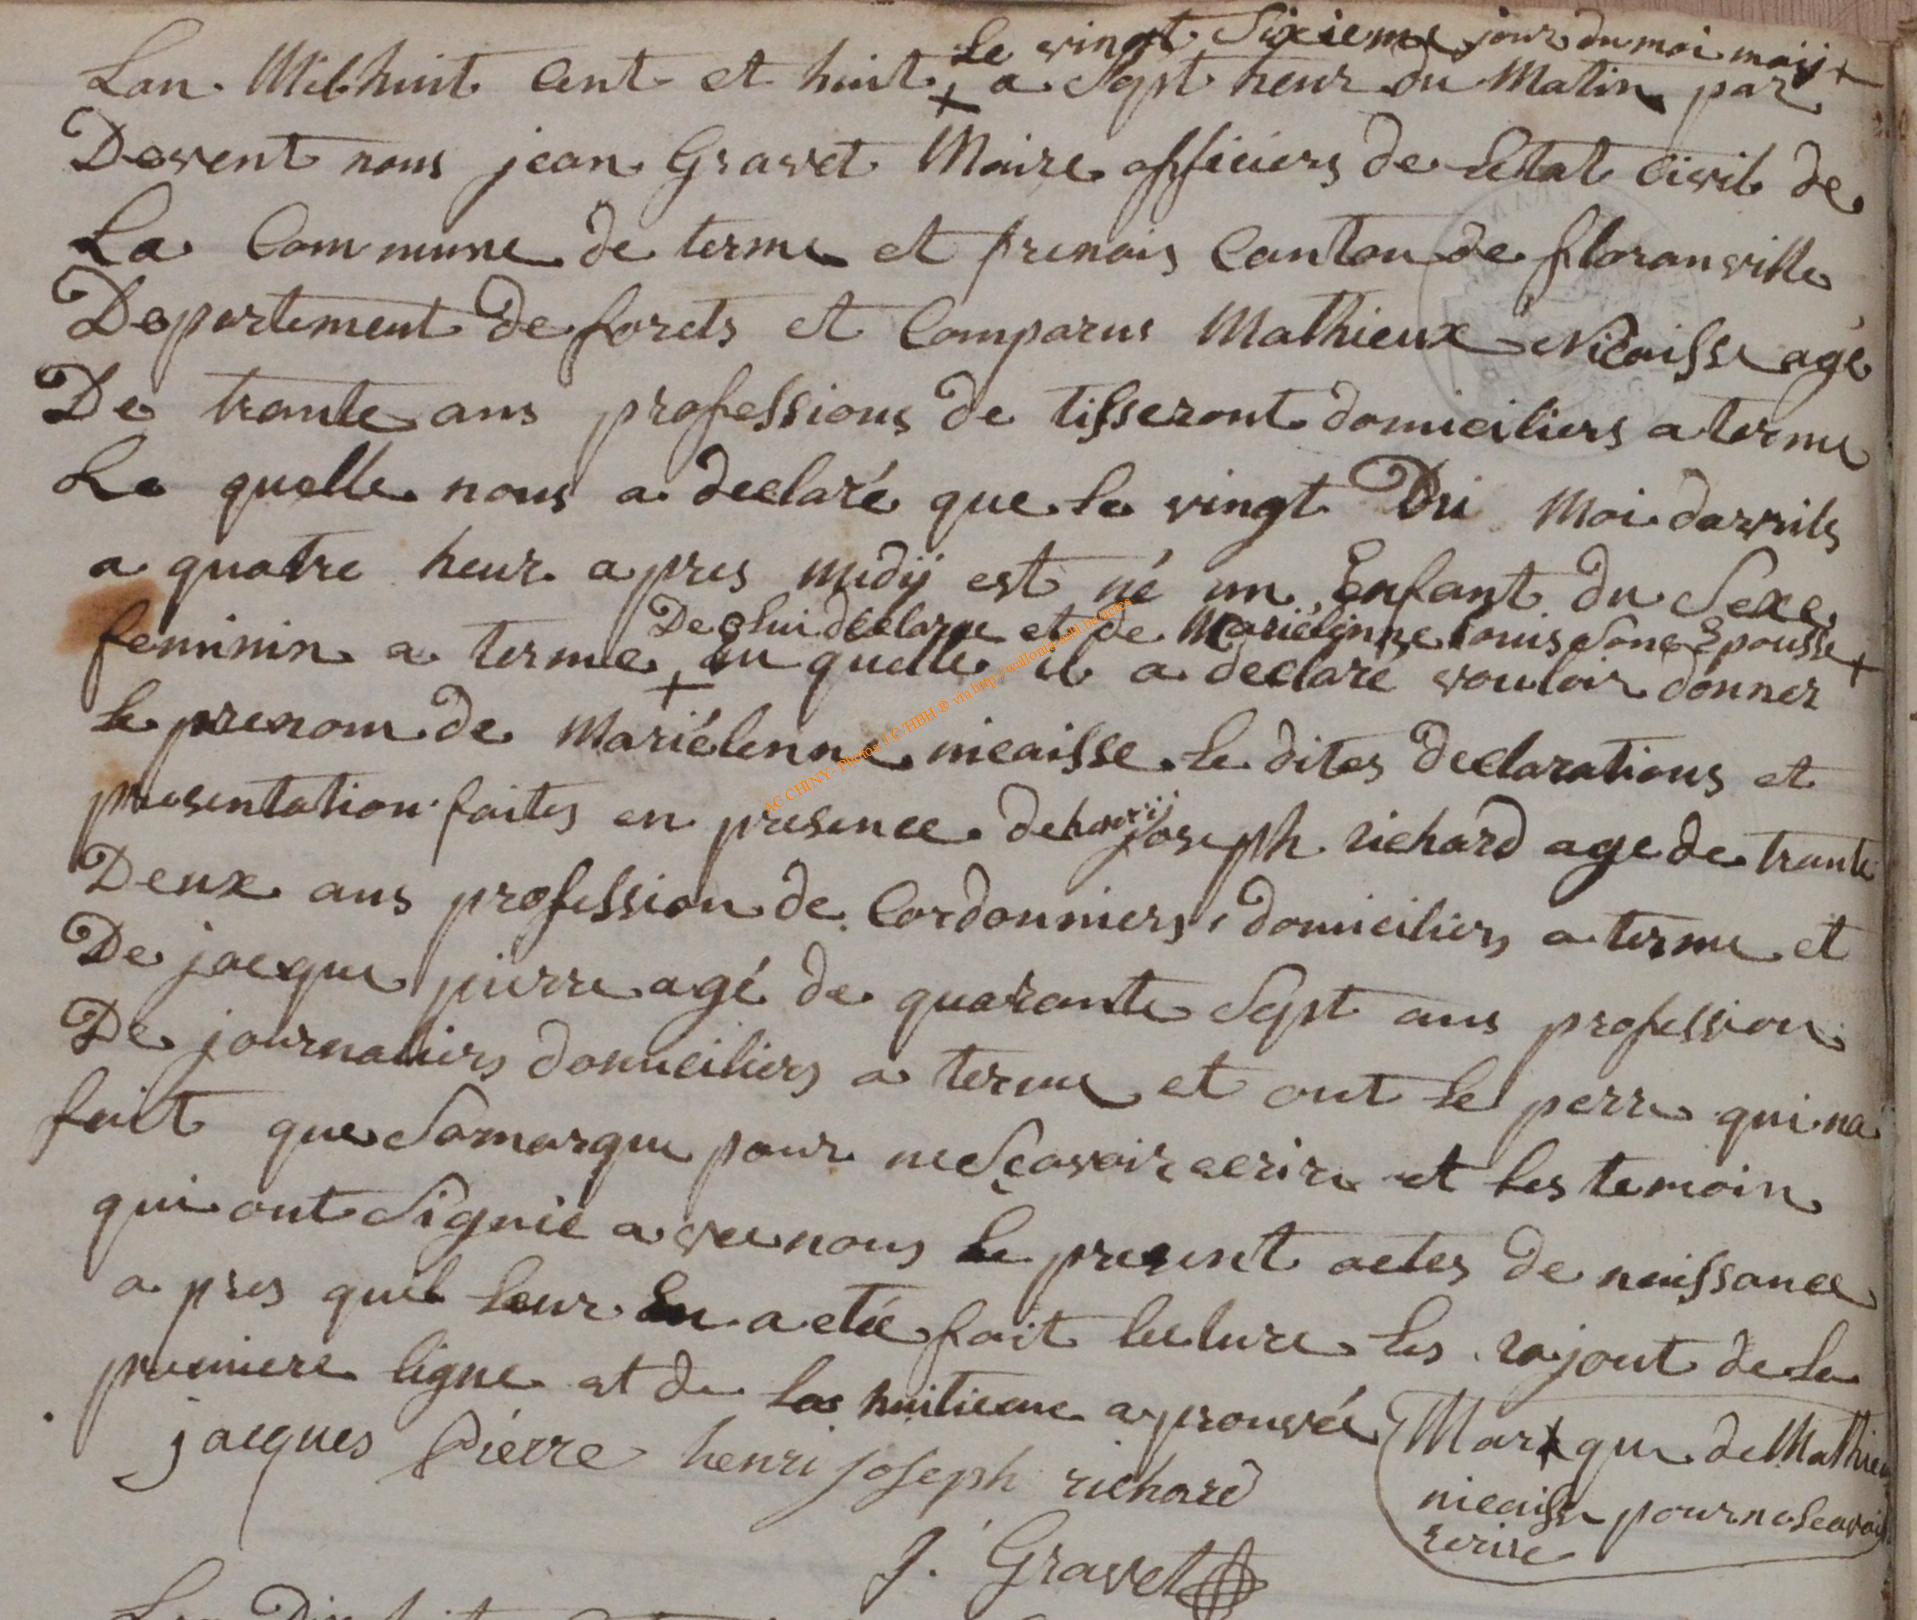 Le vingt Sixieme jour du moi maij +
Lan Mil huit Cent et huit + a Sept heur du Matin par
Devent nous jean Gravet Maire officiers de Letat Civil de
La Commune de terme et frenois Canton de floranville
Departement de forets et Comparus Mathieux Nicaisse agé
De trante ans professions de tisseront domiciliers a terme
Le quelle nous a declaré que le vingt Du Moi davrils
a quatre heur apres midij est né un Enfant du Sexe
De Lui declarue et de Mariélenne Louis Sone Epousse +
feminin a terme + Du quelle il a declaré vouloir donner
le prenom de Mariélenne nicaisse le dites declarations et
henrij
presentation faites en presence de joseph richard age de trante
Deux ans profession de Cordonniers domiciliers a terme et
De jacque pierre agé de quarante Sept ans profession
De journaliers domiciliers a terme et ont le perre qui na
fait que Samarque pour ne Sçavoir aecrire et les temoin
qui ont Signié avec nous le present actes de naissance
a pres quil leur En a etée fait lecture les rajout de la
premiere ligne et de la huitieme aprouvée
jacques Piérre henri joseph richard
Mar x que de Mathieu
nicaisse pour ne Scavoir
ecrire
J. Gravet
AC CHINY- Photos ! © HBH ® via http://wallonia